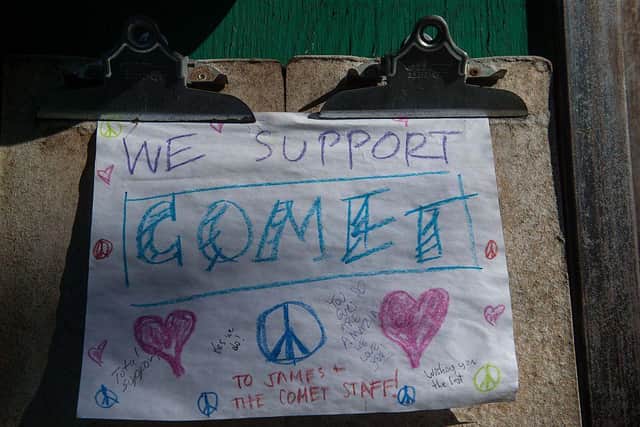 WE SUPPORT
COMET
Total
support
Yes we
do!
TO JAMES +
THE COMET STAFF!
Wishing you
the best